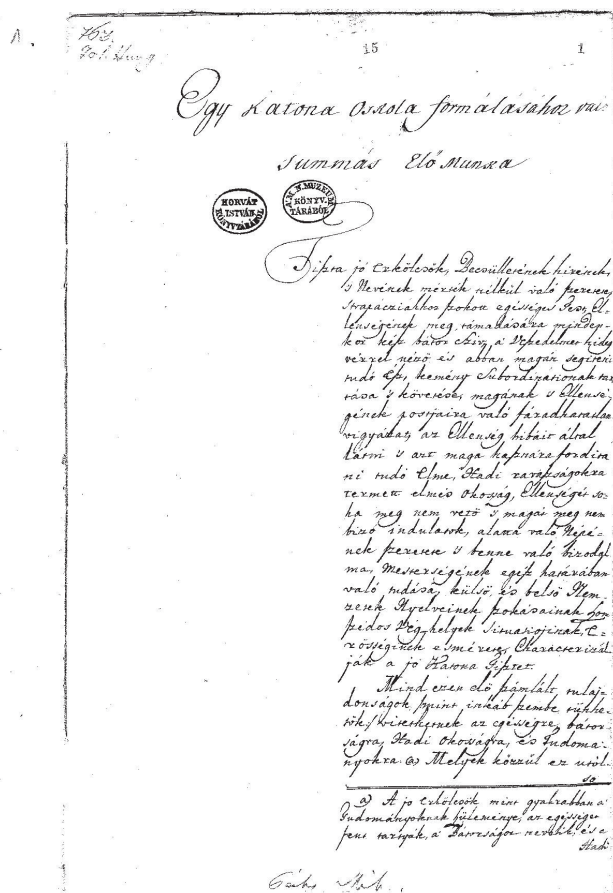 1.
163.
Fol. Hung
15 1
Egy Katona Oskola formálásához való
summás Elő Munka
HORVÁT ISTVÁN KÖNYVTÁRÁBÓL
A. M. N. MUZEUM KÖNYV. TÁRÁBÓL
Tiszta jó Erkölcsök, Becsülletének hirének,
's Nevének mérték nélkül való szeretete,
strapácziákhoz szokott egésséges Test, El-
lenségének meg támadására minden-
kor kész bátor Sziv, a Veszedelmet hideg
vérrel néző és abban magán segiteni
tudó Ész, kemény Subordinátionak tar-
tása 's követése, magának 's Ellensé-
gének postjaira való fáradhatatlan
vigyázat, az Ellenség hibáit által
látni 's azt maga hasznára fordita-
ni tudó Elme, Hadi ravaszságokra
termett elmés Okosság, Ellenségét so-
ha meg nem vető 's magát meg nem
bizó indulatok, alatta való Népé-
nek szeretete 's benne való bizodal-
ma, Mesterségének egész határában
való tudása, külső, és belső Nem-
zetek Nyelveinek szokásainak
Vég helyek Situatiojinak, E-
rősséginek esmérete, Characterizál-
ják a jó Katona Tisztet.
Mind ezen elő számlált tulaj-
donságok mint, inkább szembe tünhe-
tök / vitethetnek az egésségre, bátor-
ságra, Hadi Okosságra, és Tudomá-
nyokra. a) Melyek közzül ez utól-
so
a) A jó Erkölcsök mint gyakrabban a
Tudományoknak szüleménye, az egésséget
fent tartyák, a Bátorságot nevelik, és a
Hadi